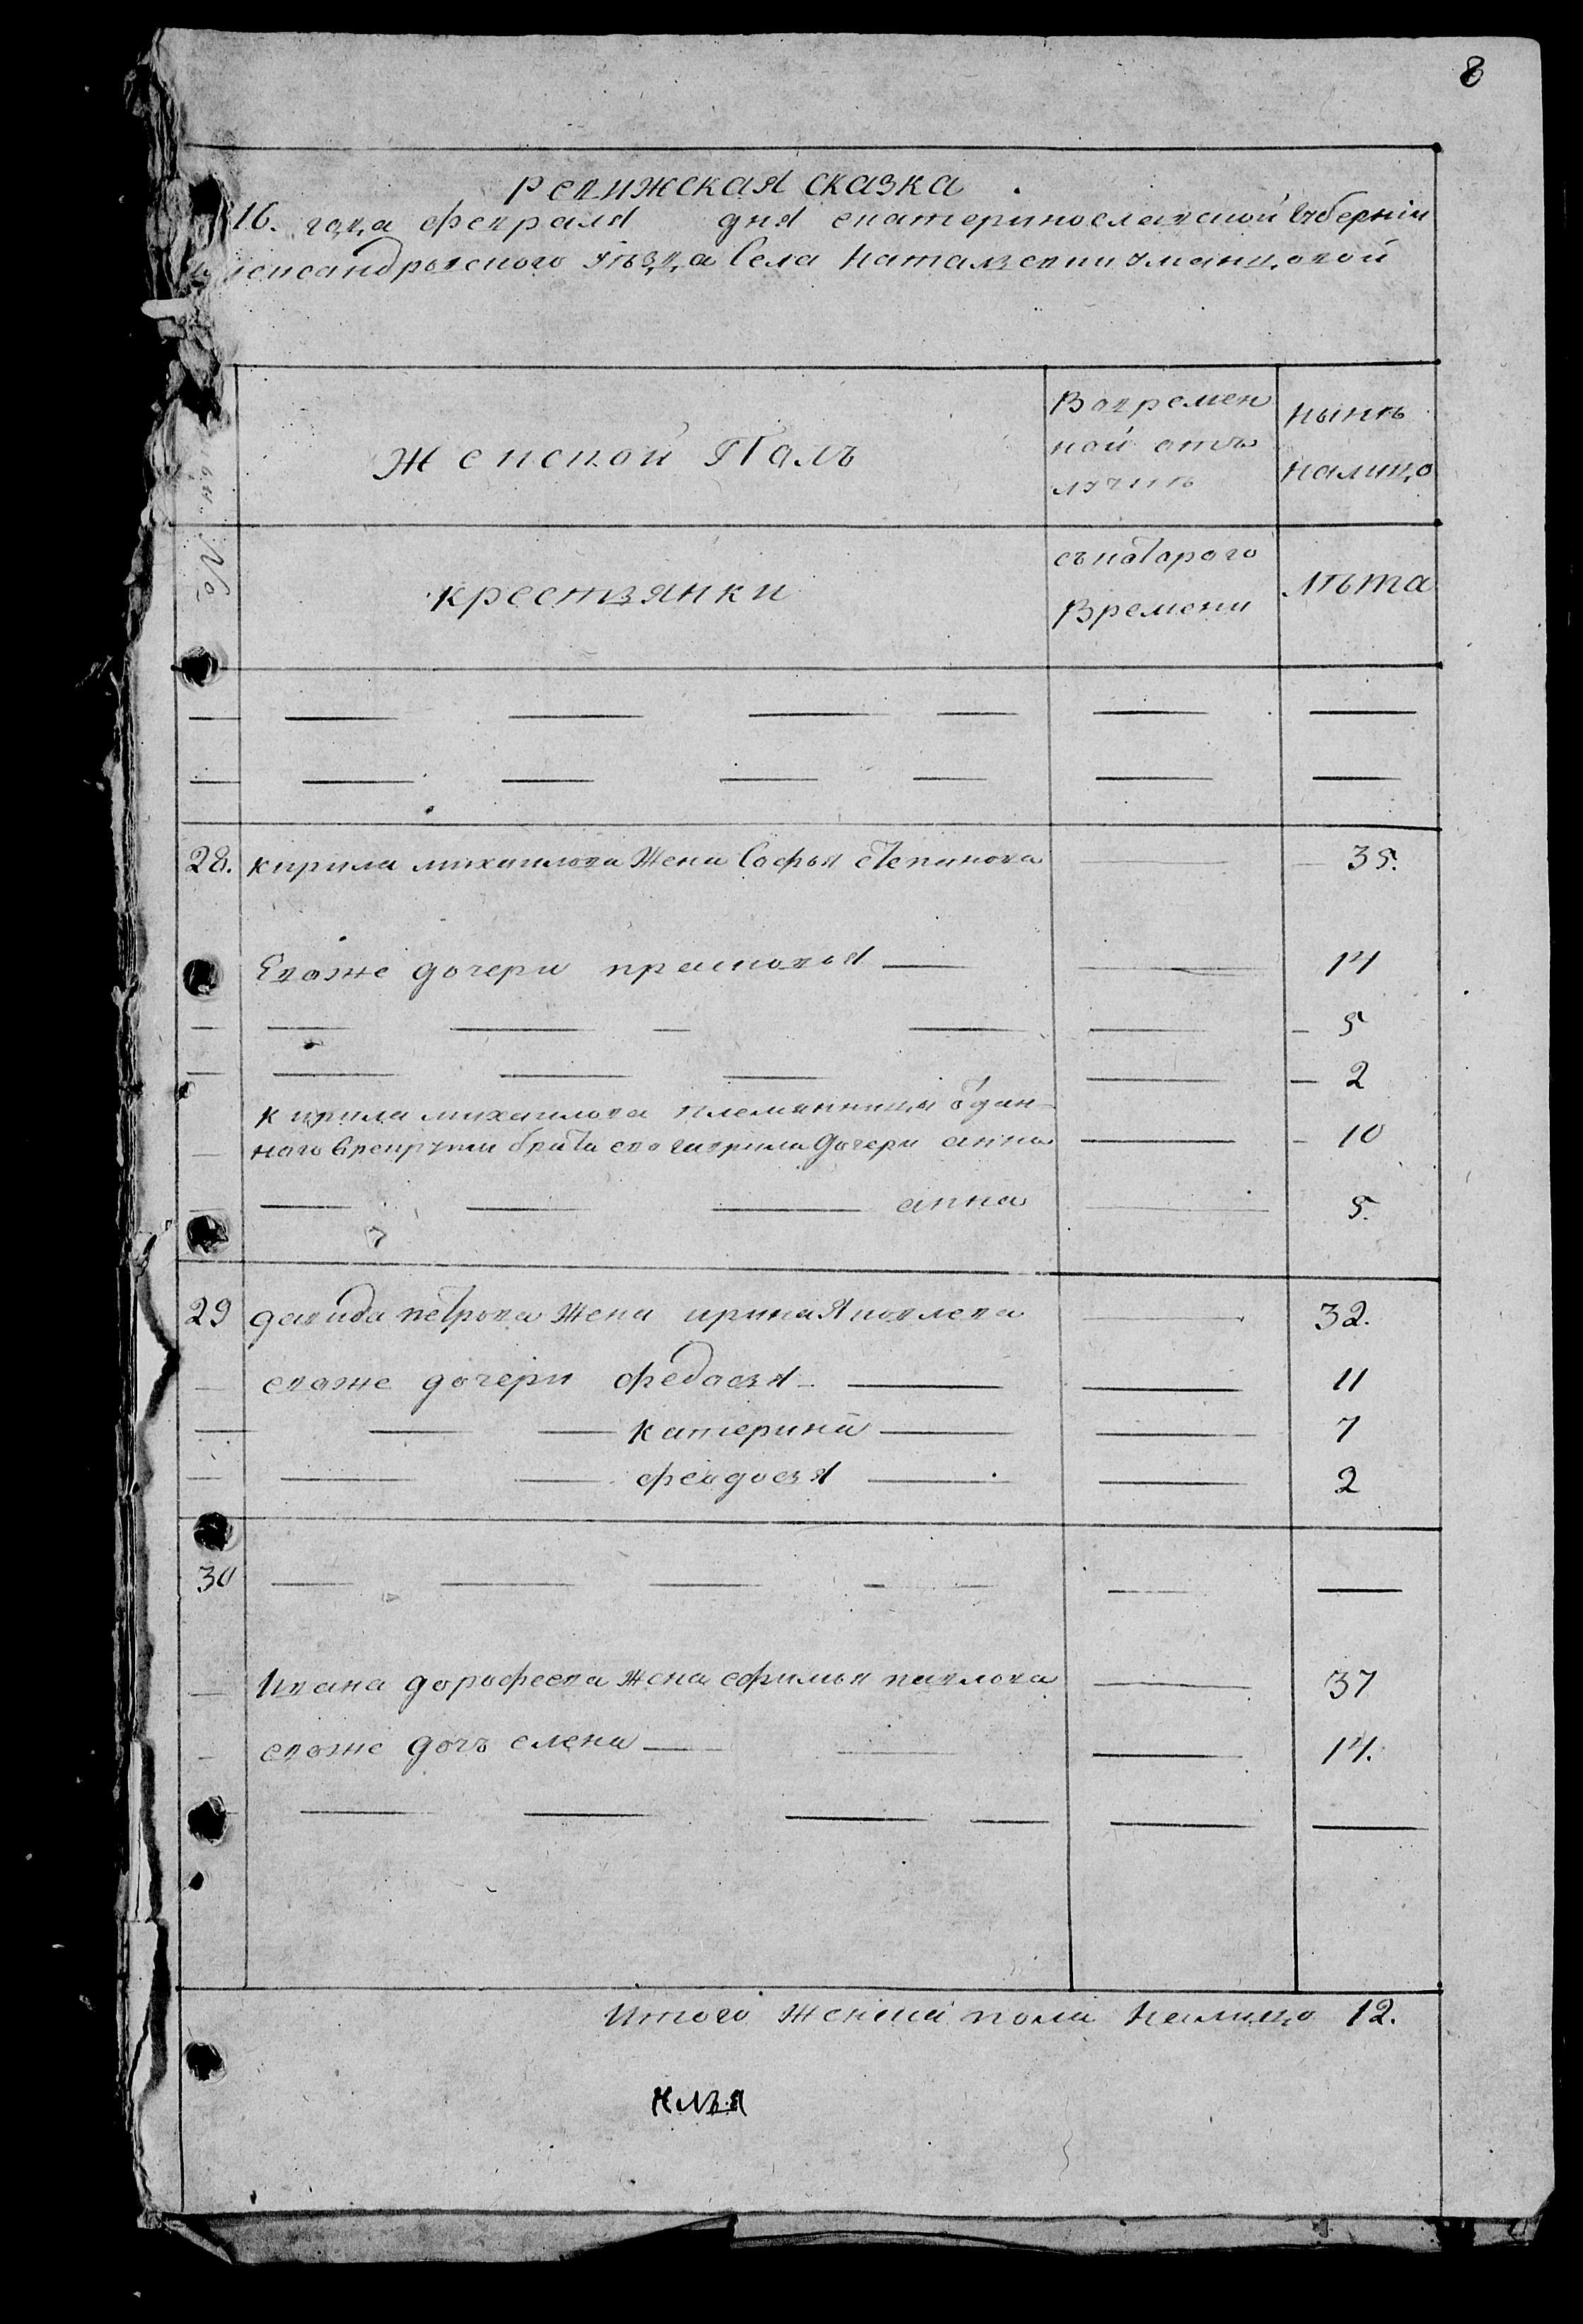 8
Ревижская сказка.
16. года февраля дня екатеринославской Губернiи
лександровского уѣзда Села Натальевки уманцовой
Женской Полъ
Вовремен
ной отъ
лучиѣ
нынѣ
налицо
№
крестьянки
съкоторого
Времени
лѣта
28. кирила михаилова Жена Софья степанова 35.
Евоже дочери прасковья 14
5
2
кирила михаилова племянницы отдан
ного Врекруты брата его гаврила дочери анна 10
анна 5.
29 давида петрова Жена ирина Яковлева 32.
евоже дочери федосья 11
катерина 7
феодосья 2
30
Ивана дорофеева Жена ефимья павлова 37
евоже дочь елена 14.
Итого женска пола Налицо 12.